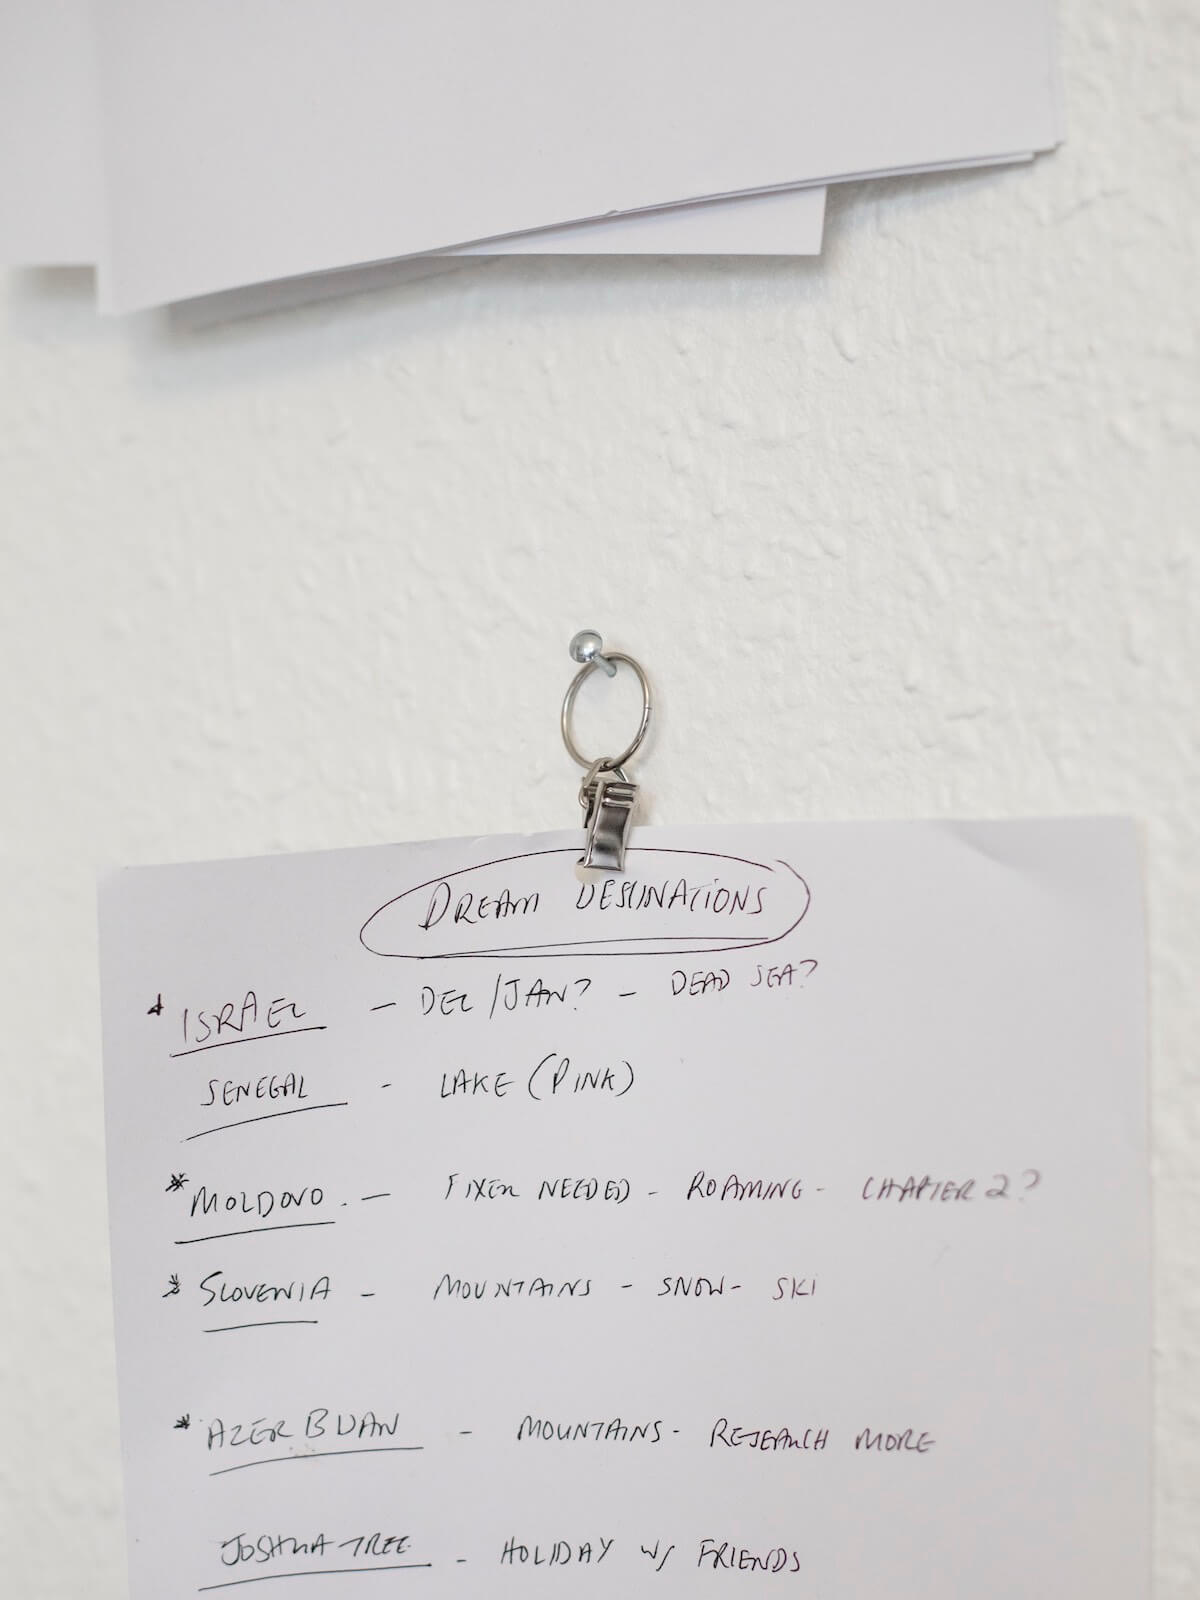 DREAM DESTINATIONS
* ISRAEL - DEC/JAN? - DEAD SEA?
SENEGAL - LAKE (PINK)
* MOLDOVO. - FIXER NEEDED - ROAMING - CHAPTER 2?
* SLOVENIA - MOUNTAINS - SNOW - SKI
* AZERBIJAN - MOUNTAINS - RESEARCH MORE
JOSHUA TREE - HOLIDAY W/ FRIENDS